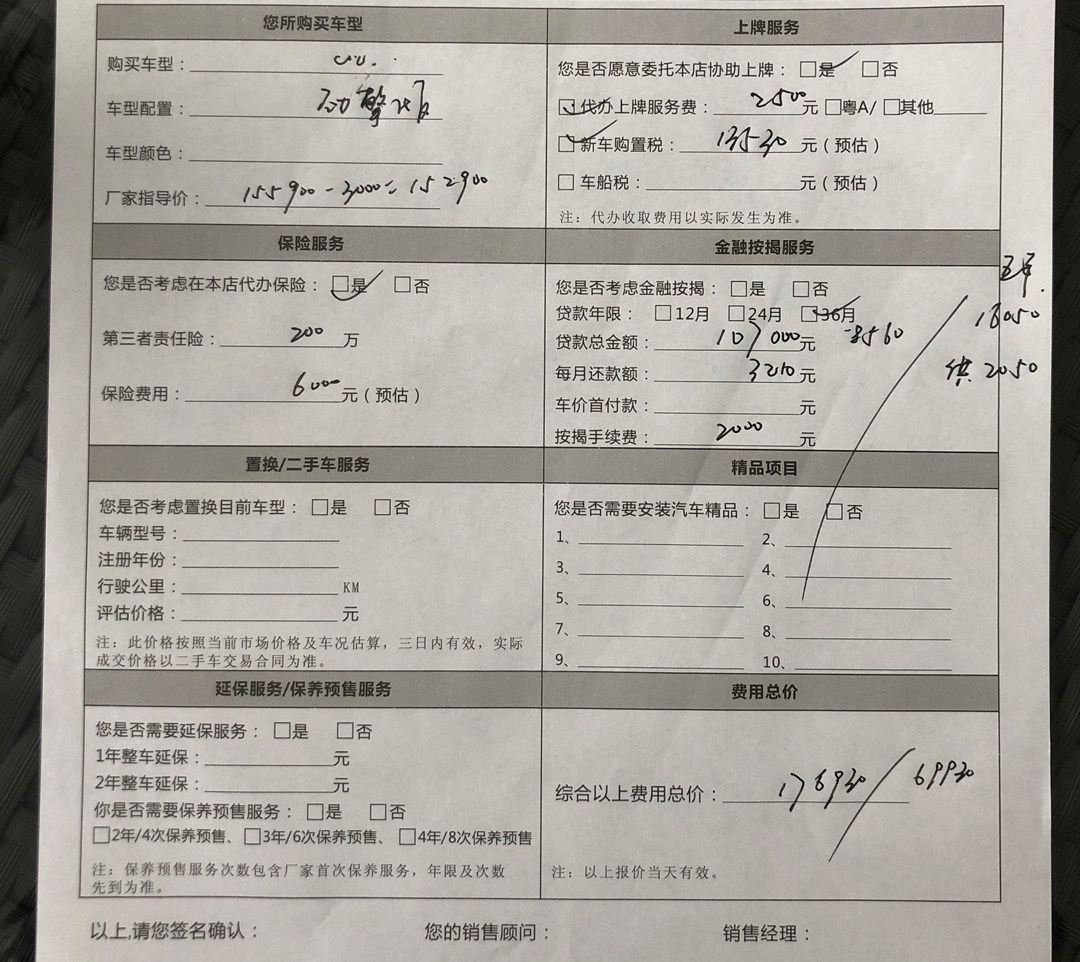 您所购买车型
购买车型：
车型配置：
车型颜色：
厂家指导价： 155900-3000=152900
上牌服务
您是否愿意委托本店协助上牌：□是 □否
□代办上牌服务费： 2500 元 □粤A/ □其他
□新车购置税： 13530 元（预估）
□车船税： 元（预估）
注：代办收取费用以实际发生为准。
保险服务
您是否考虑在本店代办保险：□是 □否
第三者责任险： 200 万
保险费用： 6000 元（预估）
金融按揭服务
您是否考虑金融按揭：□是 □否
贷款年限：□12月 □24月 □36月
贷款总金额： 107000 元
每月还款额： 3210 元
车价首付款： 元
按揭手续费： 2000 元
五年
18050
供 2050
置换/二手车服务
您是否考虑置换目前车型：□是 □否
车辆型号：
注册年份：
行驶公里： KM
评估价格： 元
注：此价格按照当前市场价格及车况估算，三日内有效，实际
成交价格以二手车交易合同为准。
精品项目
您是否需要安装汽车精品：□是 □否
1、 2、
3、 4、
5、 6、
7、 8、
9、 10、
延保服务/保养预售服务
您是否需要延保服务：□是 □否
1年整车延保： 元
2年整车延保： 元
你是否需要保养预售服务：□是 □否
□2年/4次保养预售、□3年/6次保养预售、□4年/8次保养预售
注：保养预售服务次数包含厂家首次保养服务，年限及次数
先到为准。
费用总价
综合以上费用总价： 176930 / 69930
注：以上报价当天有效。
以上,请您签名确认： 您的销售顾问： 销售经理：